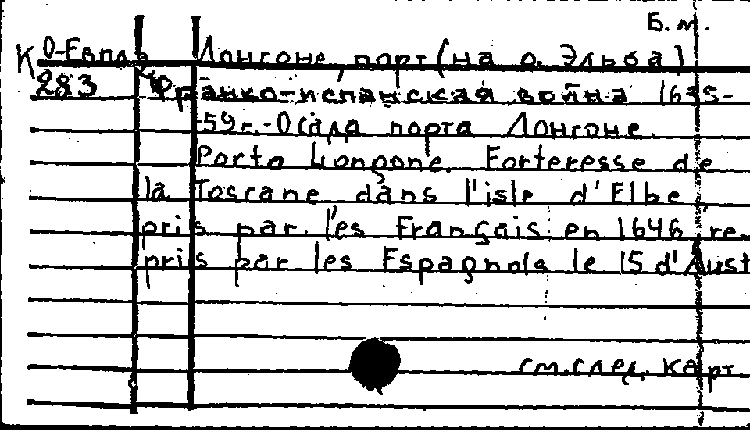 Б.м.
К О-Евпа Лонгоне, порт (на о. Эльба)
283 Франко-испанская война 1635-
59г.-Осада порта Лонгоне.
Porto Longone. Forteresse de
la Toscane dans l'isle d'Elbe
pris par les Français en 1646 re-
pris par les Espagnols le 15 d'Aust
см. след. карт